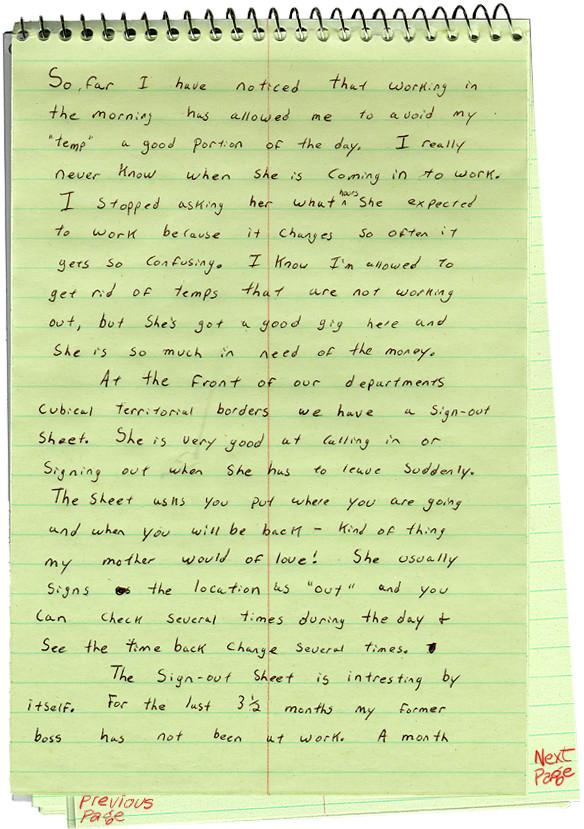 So, far I have noticed that working in
the morning has allowed me to avoid my
"temp" a good portion of the day. I really
never know when she is coming in to work.
I stopped asking her what ^hours she expected
to work because it changes so often it
gets so confusing. I know I'm allowed to
get rid of temps that are not working
out, but she's got a good gig here and
she is so much in need of the money.
At the front of our departments
cubical territorial borders we have a sign-out
sheet. She is very good at calling in or
signing out when she has to leave suddenly.
The sheet asks you put where you are going
and when you will be back - kind of thing
my mother would of love! She usually
signs the location as "out" and you
can check several times during the day &
see the time back change several times.
The sign-out sheet is intresting by
itself. For the last 3 1/2 months my former
boss has not been at work. A month
Next
Page
Previous
Page